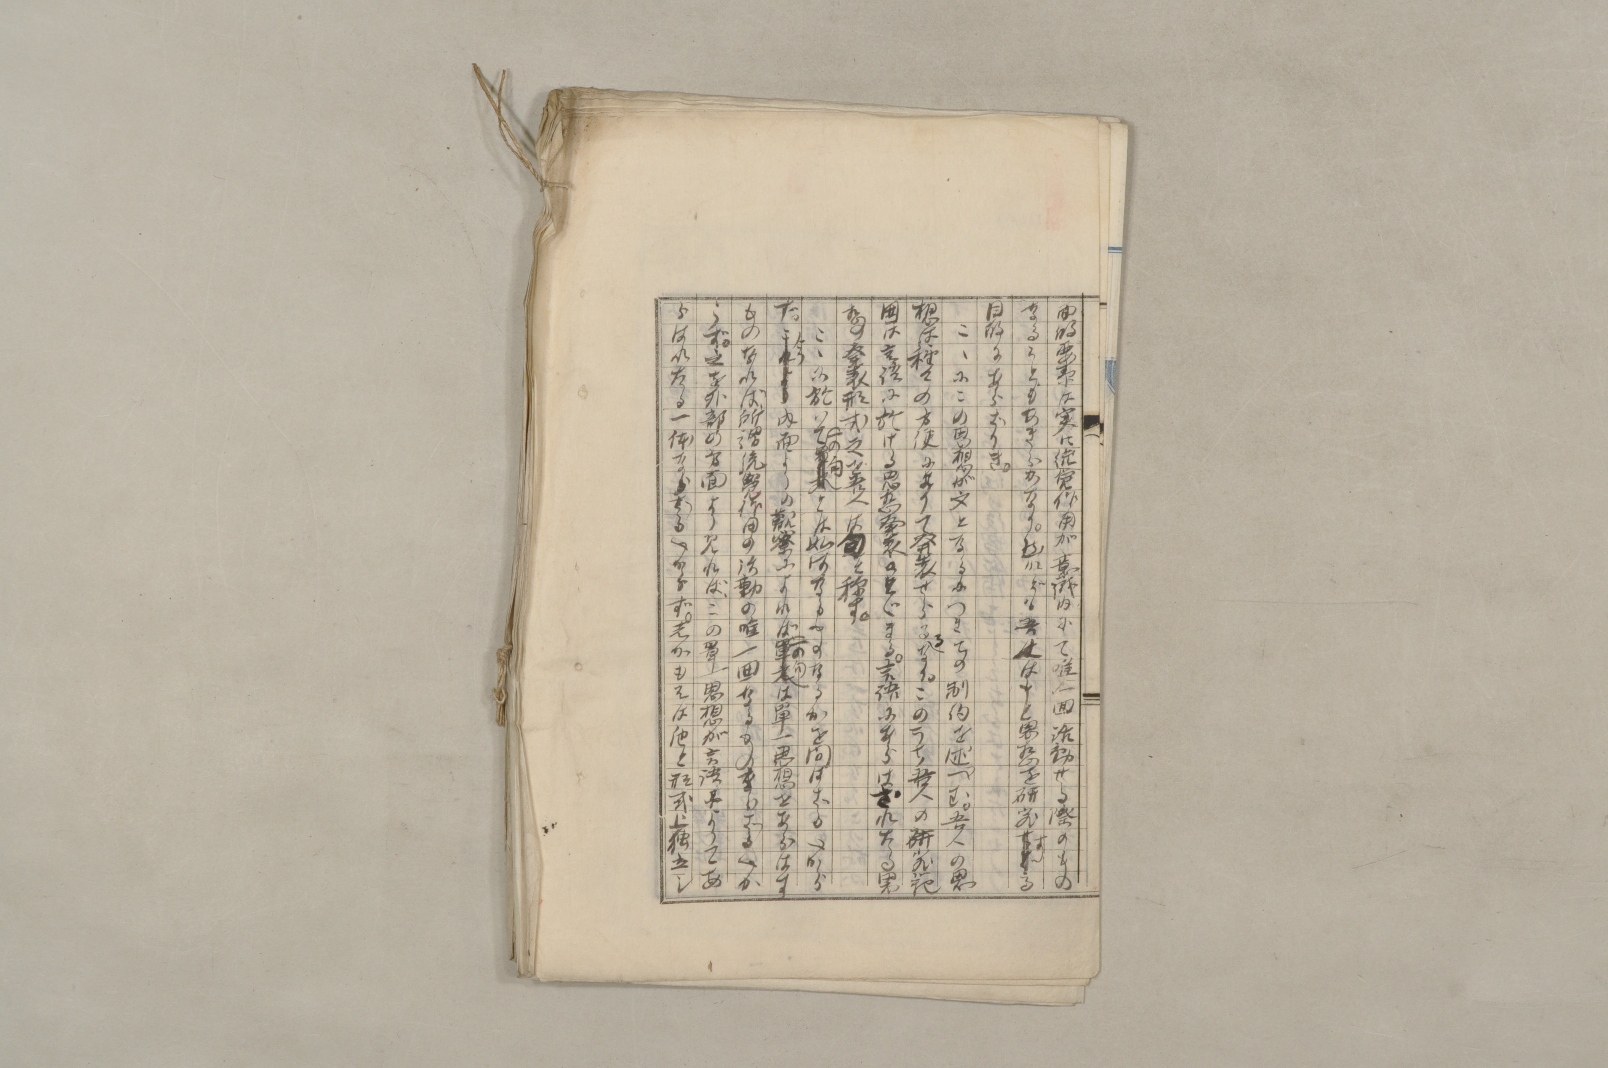 面的要素は実に統覚作用が意識内にて唯一回活動せる際のもの
なることもあきらかなり。然れども吾人はもと思想を研究する
目的にあらざりき。
こゝにこの思想が文となるにつきての制約を述べむ。吾人の思
想は種々の方便によりて発表せらるゝなり。このうち吾人の研究範
囲は言語に於ける思想発表のまゝ言語にあらはされたる思
想の発表形式之を吾人は句と称す。
こゝに於いて一の句とは如何なるものなるかを問はむもへから
た 今 内面よりの観察によれば一の句は単一思想をあらはす
ものなれば所謂統覚作用の活動の唯一回なるものならざるべか
らず。之を外部の方面より見れば、この単一思想が言語によりてあ
らはれたる一体ならざるべからず。しかもそは他と形式上独立し